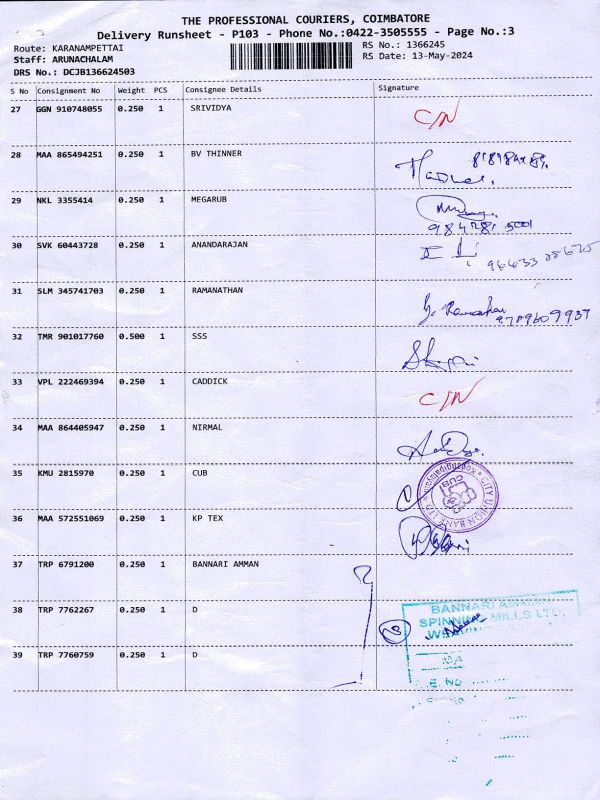 THE PROFESSIONAL COURIERS, COIMBATORE
Delivery Runsheet - P103 - Phone No.:0422-3505555 - Page No.:3
Route: KARANAMPETTAI RS No.: 1366245
Staff: ARUNACHALAM RS Date: 13-May-2024
DRS No.: DCJB136624503
S No Consignment No Weight PCS Consignee Details Signature
27 GGN 910748055 0.250 1 SRIVIDYA C/N
28 MAA 865494251 0.250 1 BV THINNER
29 NKL 3355414 0.250 1 MEGARUB
30 SVK 60443728 0.250 1 ANANDARAJAN
31 SLM 345741703 0.250 1 RAMANATHAN
32 TMR 901017760 0.500 1 SSS
33 VPL 222469394 0.250 1 CADDICK C/N
34 MAA 864405947 0.250 1 NIRMAL
35 KMU 2815970 0.250 1 CUB
CITY UNION BANK LTD.
CUB
36 MAA 572551069 0.250 1 KP TEX
37 TRP 6791200 0.250 1 BANNARI AMMAN
38 TRP 7762267 0.250 1 D
BANNARI AMMAN
SPINNING MILLS LTD.
39 TRP 7760759 0.250 1 D